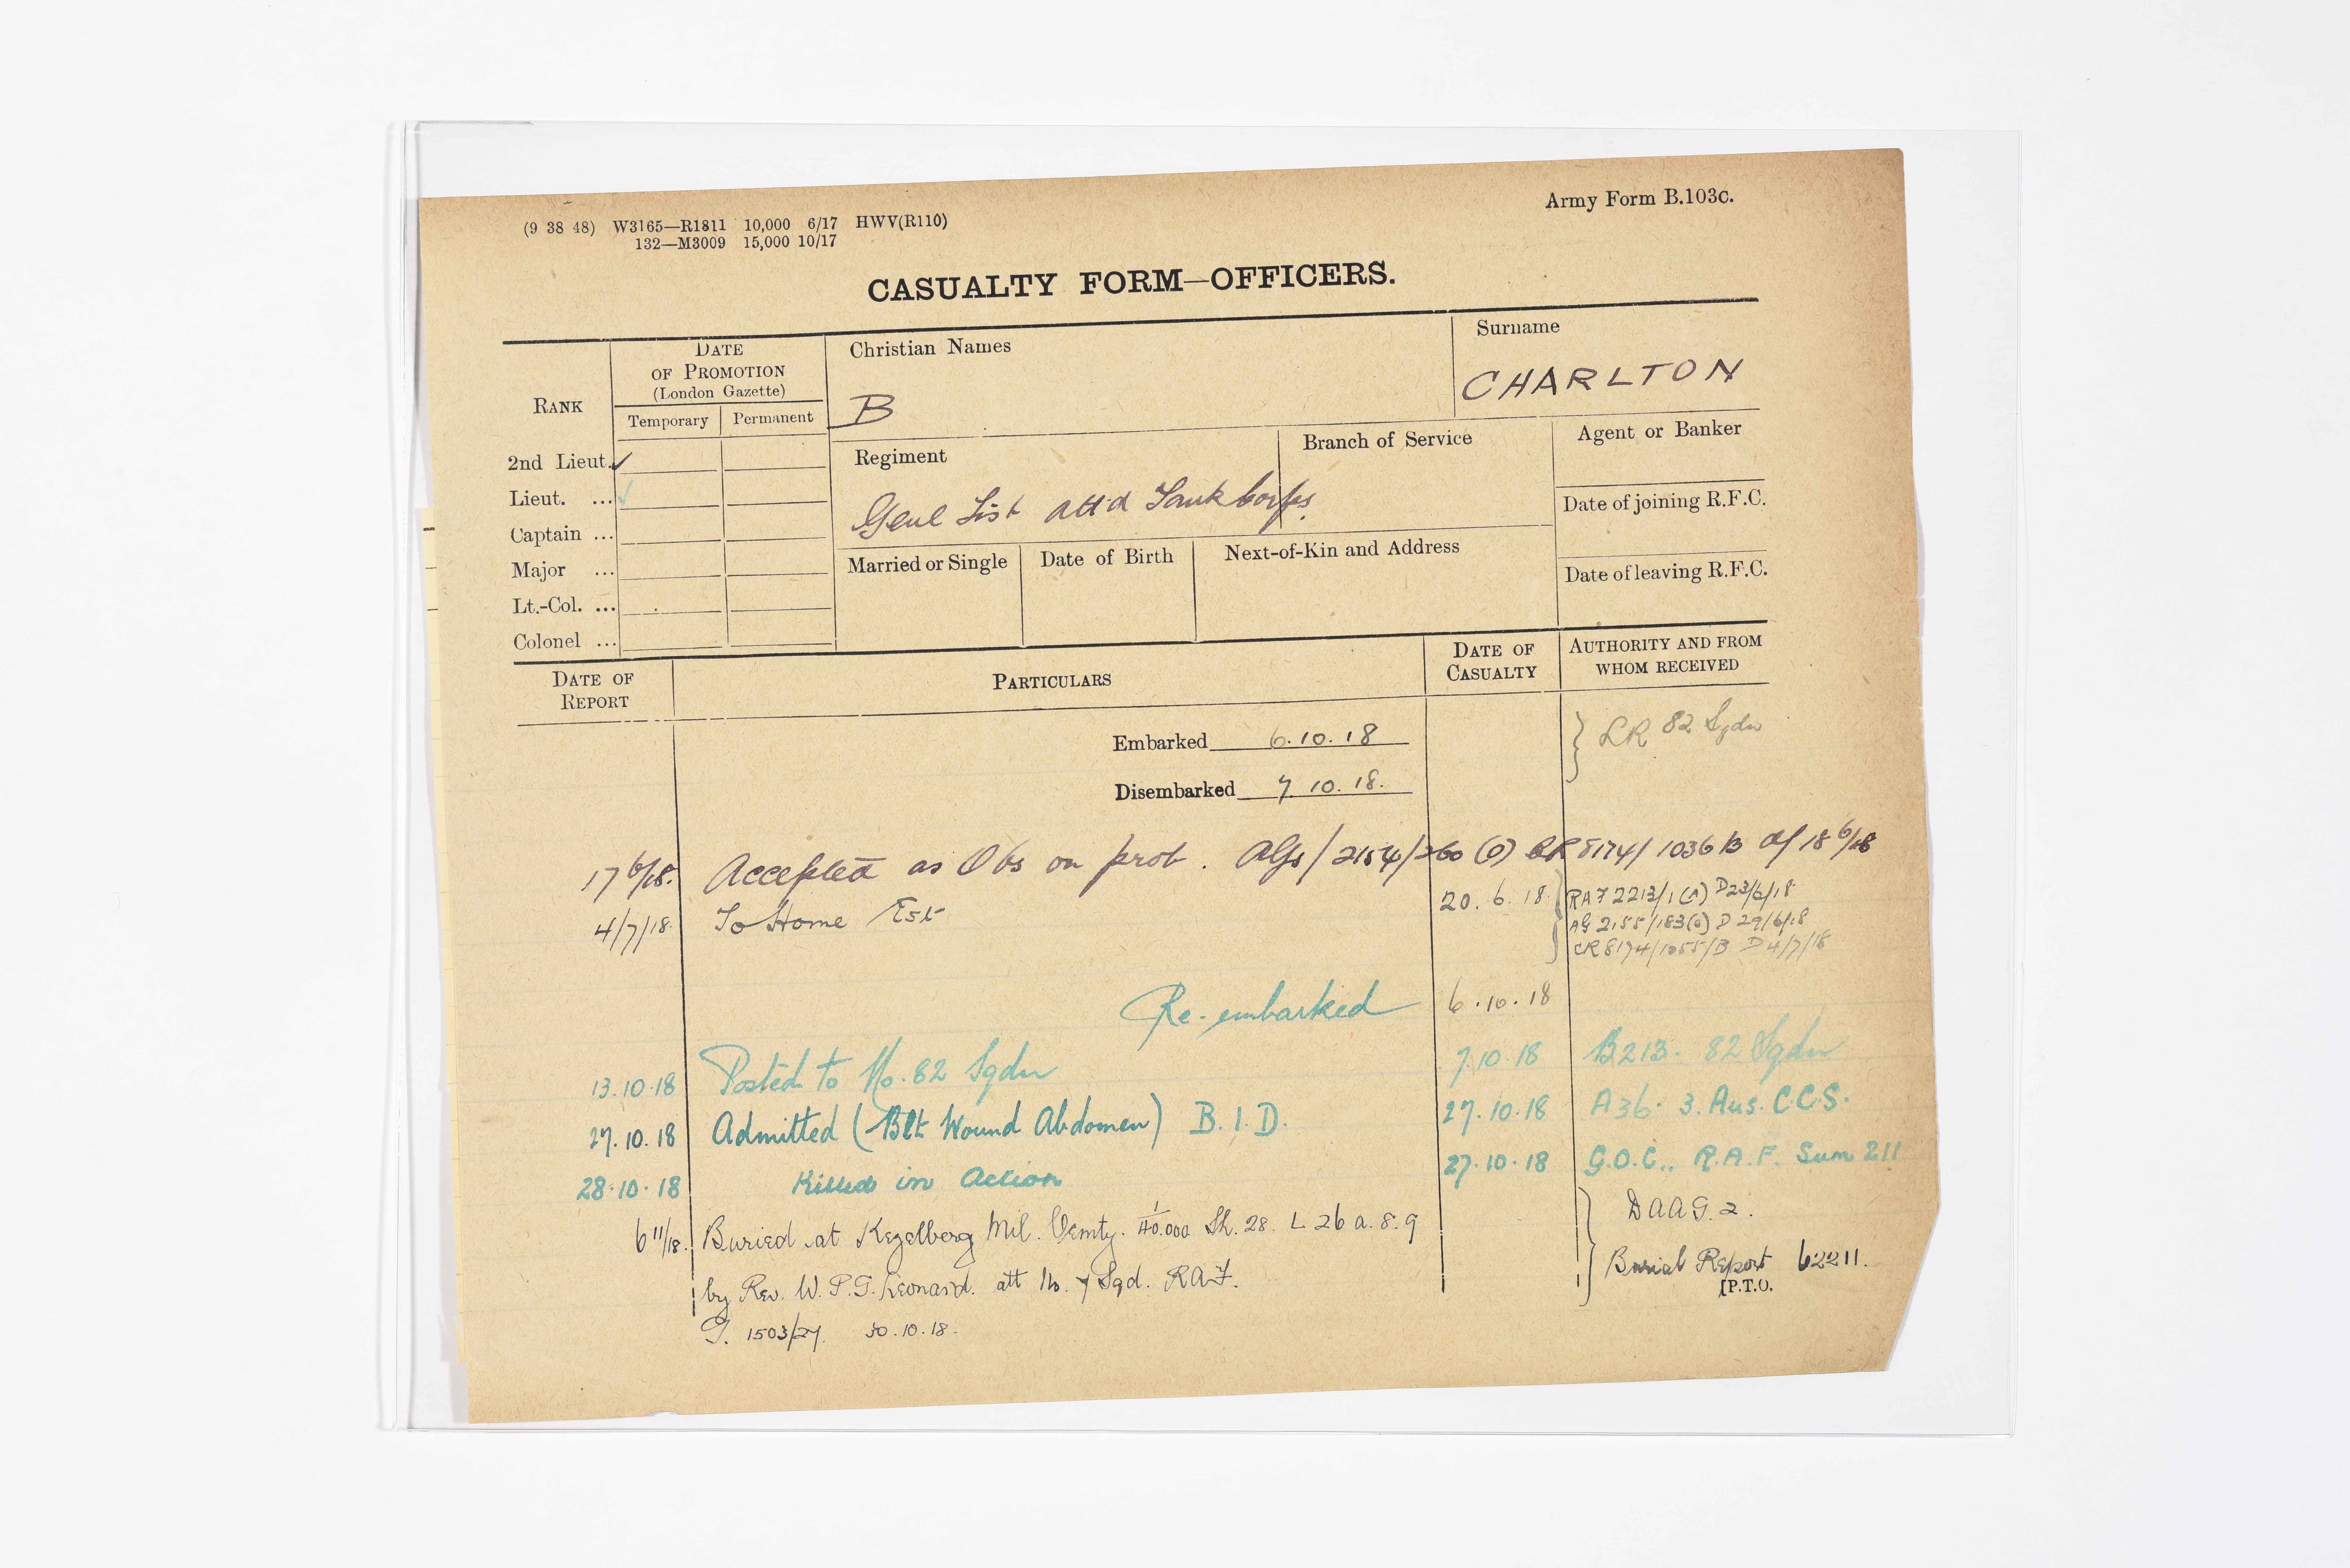 (9 38 48) W3165—R1811 10,000 6/17 HWV(R110)
132—M3009 15,000 10/17
Army Form B.103c.
CASUALTY FORM—OFFICERS.
RANK
DATE OF PROMOTION (London Gazette)
Temporary Permanent
2nd Lieut. ✓
Lieut. ... ✓
Captain ...
Major ...
Lt.-Col. ...
Colonel ...
Christian Names
B
Surname
CHARLTON
Regiment
Branch of Service
Genl List att'd Tank Corps.
Agent or Banker
Date of joining R.F.C.
Date of leaving R.F.C.
Married or Single
Date of Birth
Next-of-Kin and Address
DATE OF REPORT
PARTICULARS
DATE OF CASUALTY
AUTHORITY AND FROM WHOM RECEIVED
Embarked 6.10.18
LR 82 Sqdn
Disembarked 7.10.18.
17 6/18. Accepted as Obs on prob. AGs/2154/260 (O) CR 8174/1036 B of 18 6/18
4/7/18 To Home Est 20.6.18 RAF 2213/1(A) D 23/6/18
AG 2155/183(O) D 29/6/18
CR 8174/1055/B D 4/7/18
Re-embarked 6.10.18
13.10.18 Posted to No. 82 Sqdn 7.10.18 B213. 82 Sqdn
27.10.18 Admitted (Blt Wound Abdomen) B.I.D. 27.10.18 A36. 3. Aus. C.C.S.
28.10.18 Killed in Action 27.10.18 G.O.C., R.A.F. Sum 211
6 11/18. Buried at Kezelberg Mil. Cemty. 1/40.000 Sh. 28. L 26 a. 8.9 DAAG.2.
by Rev. W. P. G. Leonard. att No. 7 Sqd. RAF. Burial Report 62211.
[P.T.O.
G. 1503/27. 30.10.18.